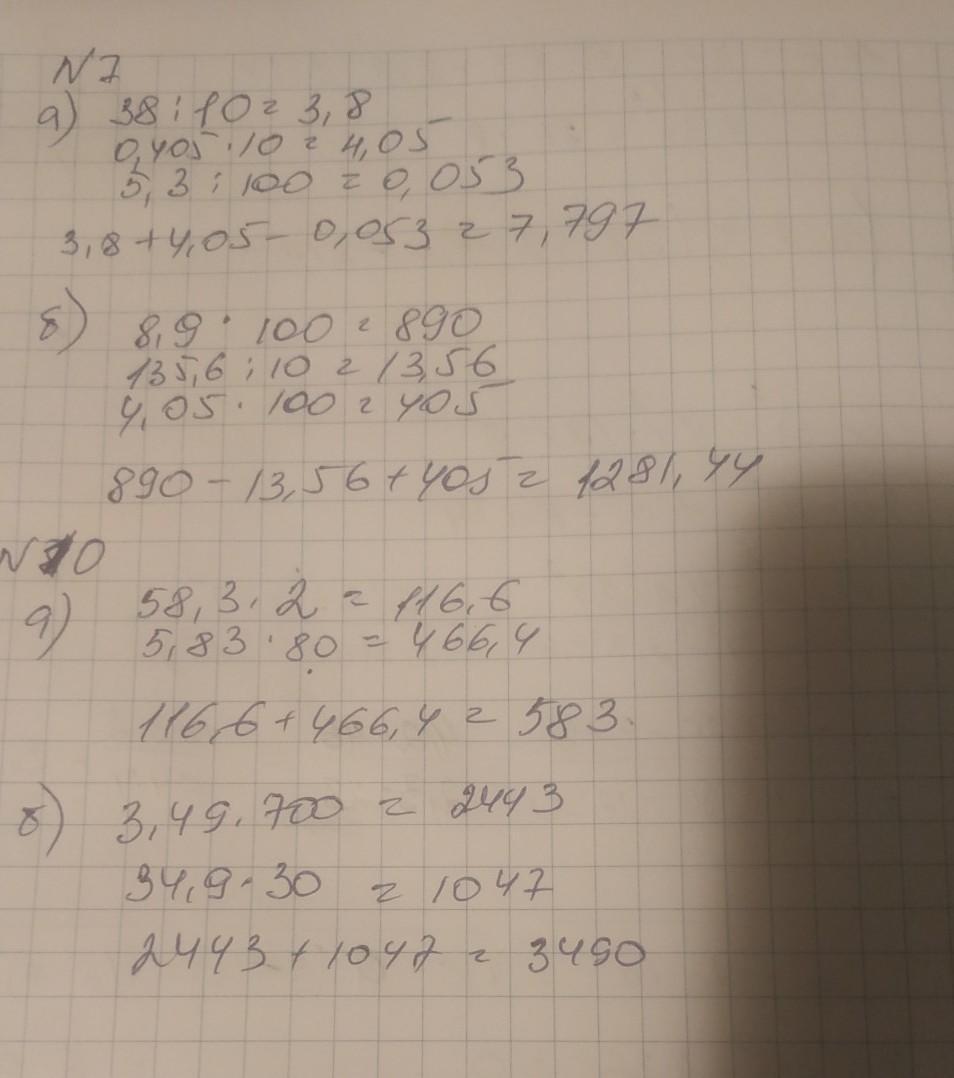 №7
а) 38 : 10 = 3,8
0,405 · 10 = 4,05
5,3 : 100 = 0,053
3,8 + 4,05 - 0,053 = 7,797
б) 8,9 · 100 = 890
135,6 : 10 = 13,56
4,05 · 100 = 405
890 - 13,56 + 405 = 1281,44
№10
а) 58,3 · 2 = 116,6
5,83 · 80 = 466,4
116,6 + 466,4 = 583
б) 3,49 · 700 = 2443
34,9 · 30 = 1047
2443 + 1047 = 3490